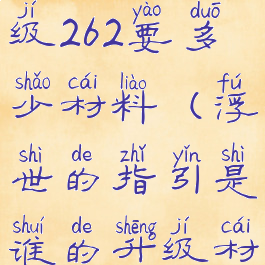 jí yào duō
级262要多
shǎo cái liào fú
少材料（浮
shì de zhǐ yǐn shì
世的指引是
shuí de shēng jí cái
谁的升级材